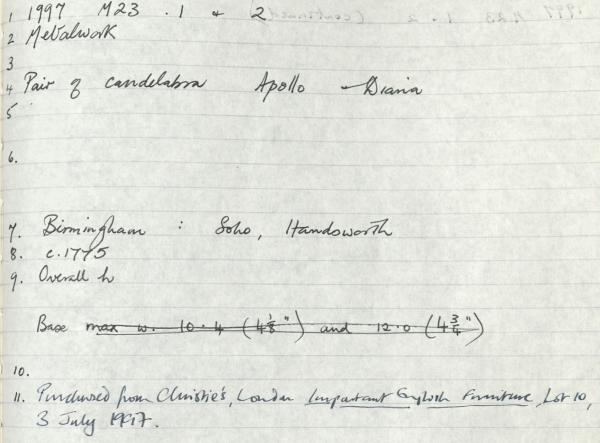 1 1997 M23 .1 & 2
2 Metalwork
3
4 Pair of candelabra Apollo - Diana
5
6.
7. Birmingham : Soho, Handsworth
8. c.1775
9. Overall h
Base max w. 10.4 (4 1/8") and 12.0 (4 3/4")
10.
11. Purchased from Christie's, London Important English Furniture, Lot 10,
3 July 1997.